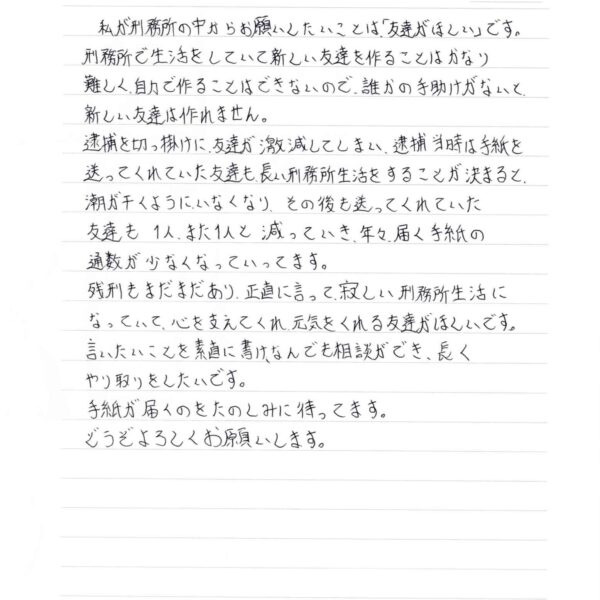 私が刑務所の中からお願いしたいことは、「友達がほしい」です。
刑務所で生活をしていて新しい友達を作ることはかなり
難しく、自力で作ることはできないので、誰かの手助けがないと、
新しい友達は作れません。
逮捕を切っ掛けに、友達が激減してしまい、逮捕当時は手紙を
送ってくれていた友達も、長い刑務所生活をすることが決まると、
潮が干くようにいなくなり、その後も送ってくれていた
友達も 1人、また1人と 減っていき、年々、届く手紙の
通数が少なくなっていってます。
残刑もまだまだあり、正直に言って、寂しい刑務所生活に
なっていて、心を支えてくれ、元気をくれる友達がほしいです。
言いたいことを素直に書け、なんでも相談ができ、長く
やり取りをしたいです。
手紙が届くのをたのしみに待ってます。
どうぞよろしくお願いします。